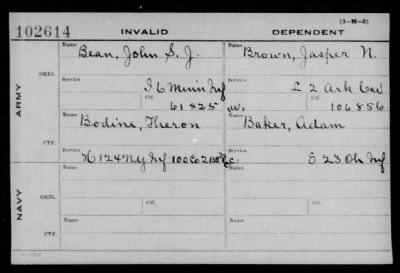 (3-H-3)
102614 INVALID DEPENDENT
ARMY
ORIG.
Name Bean, John S. J. Name Brown, Jasper N.
Service I 6 Minn Inf Service L 2 Ark Cav
Ctf. 61825 Ctf. W. 106856
CTF.
Name Bodine, Theron Name Baker, Adam
Service H 124 NY Inf Service E 23 Oh Inf
NAVY
ORIG.
Name Ctf. Name Ctf.
CTF.
Name Name